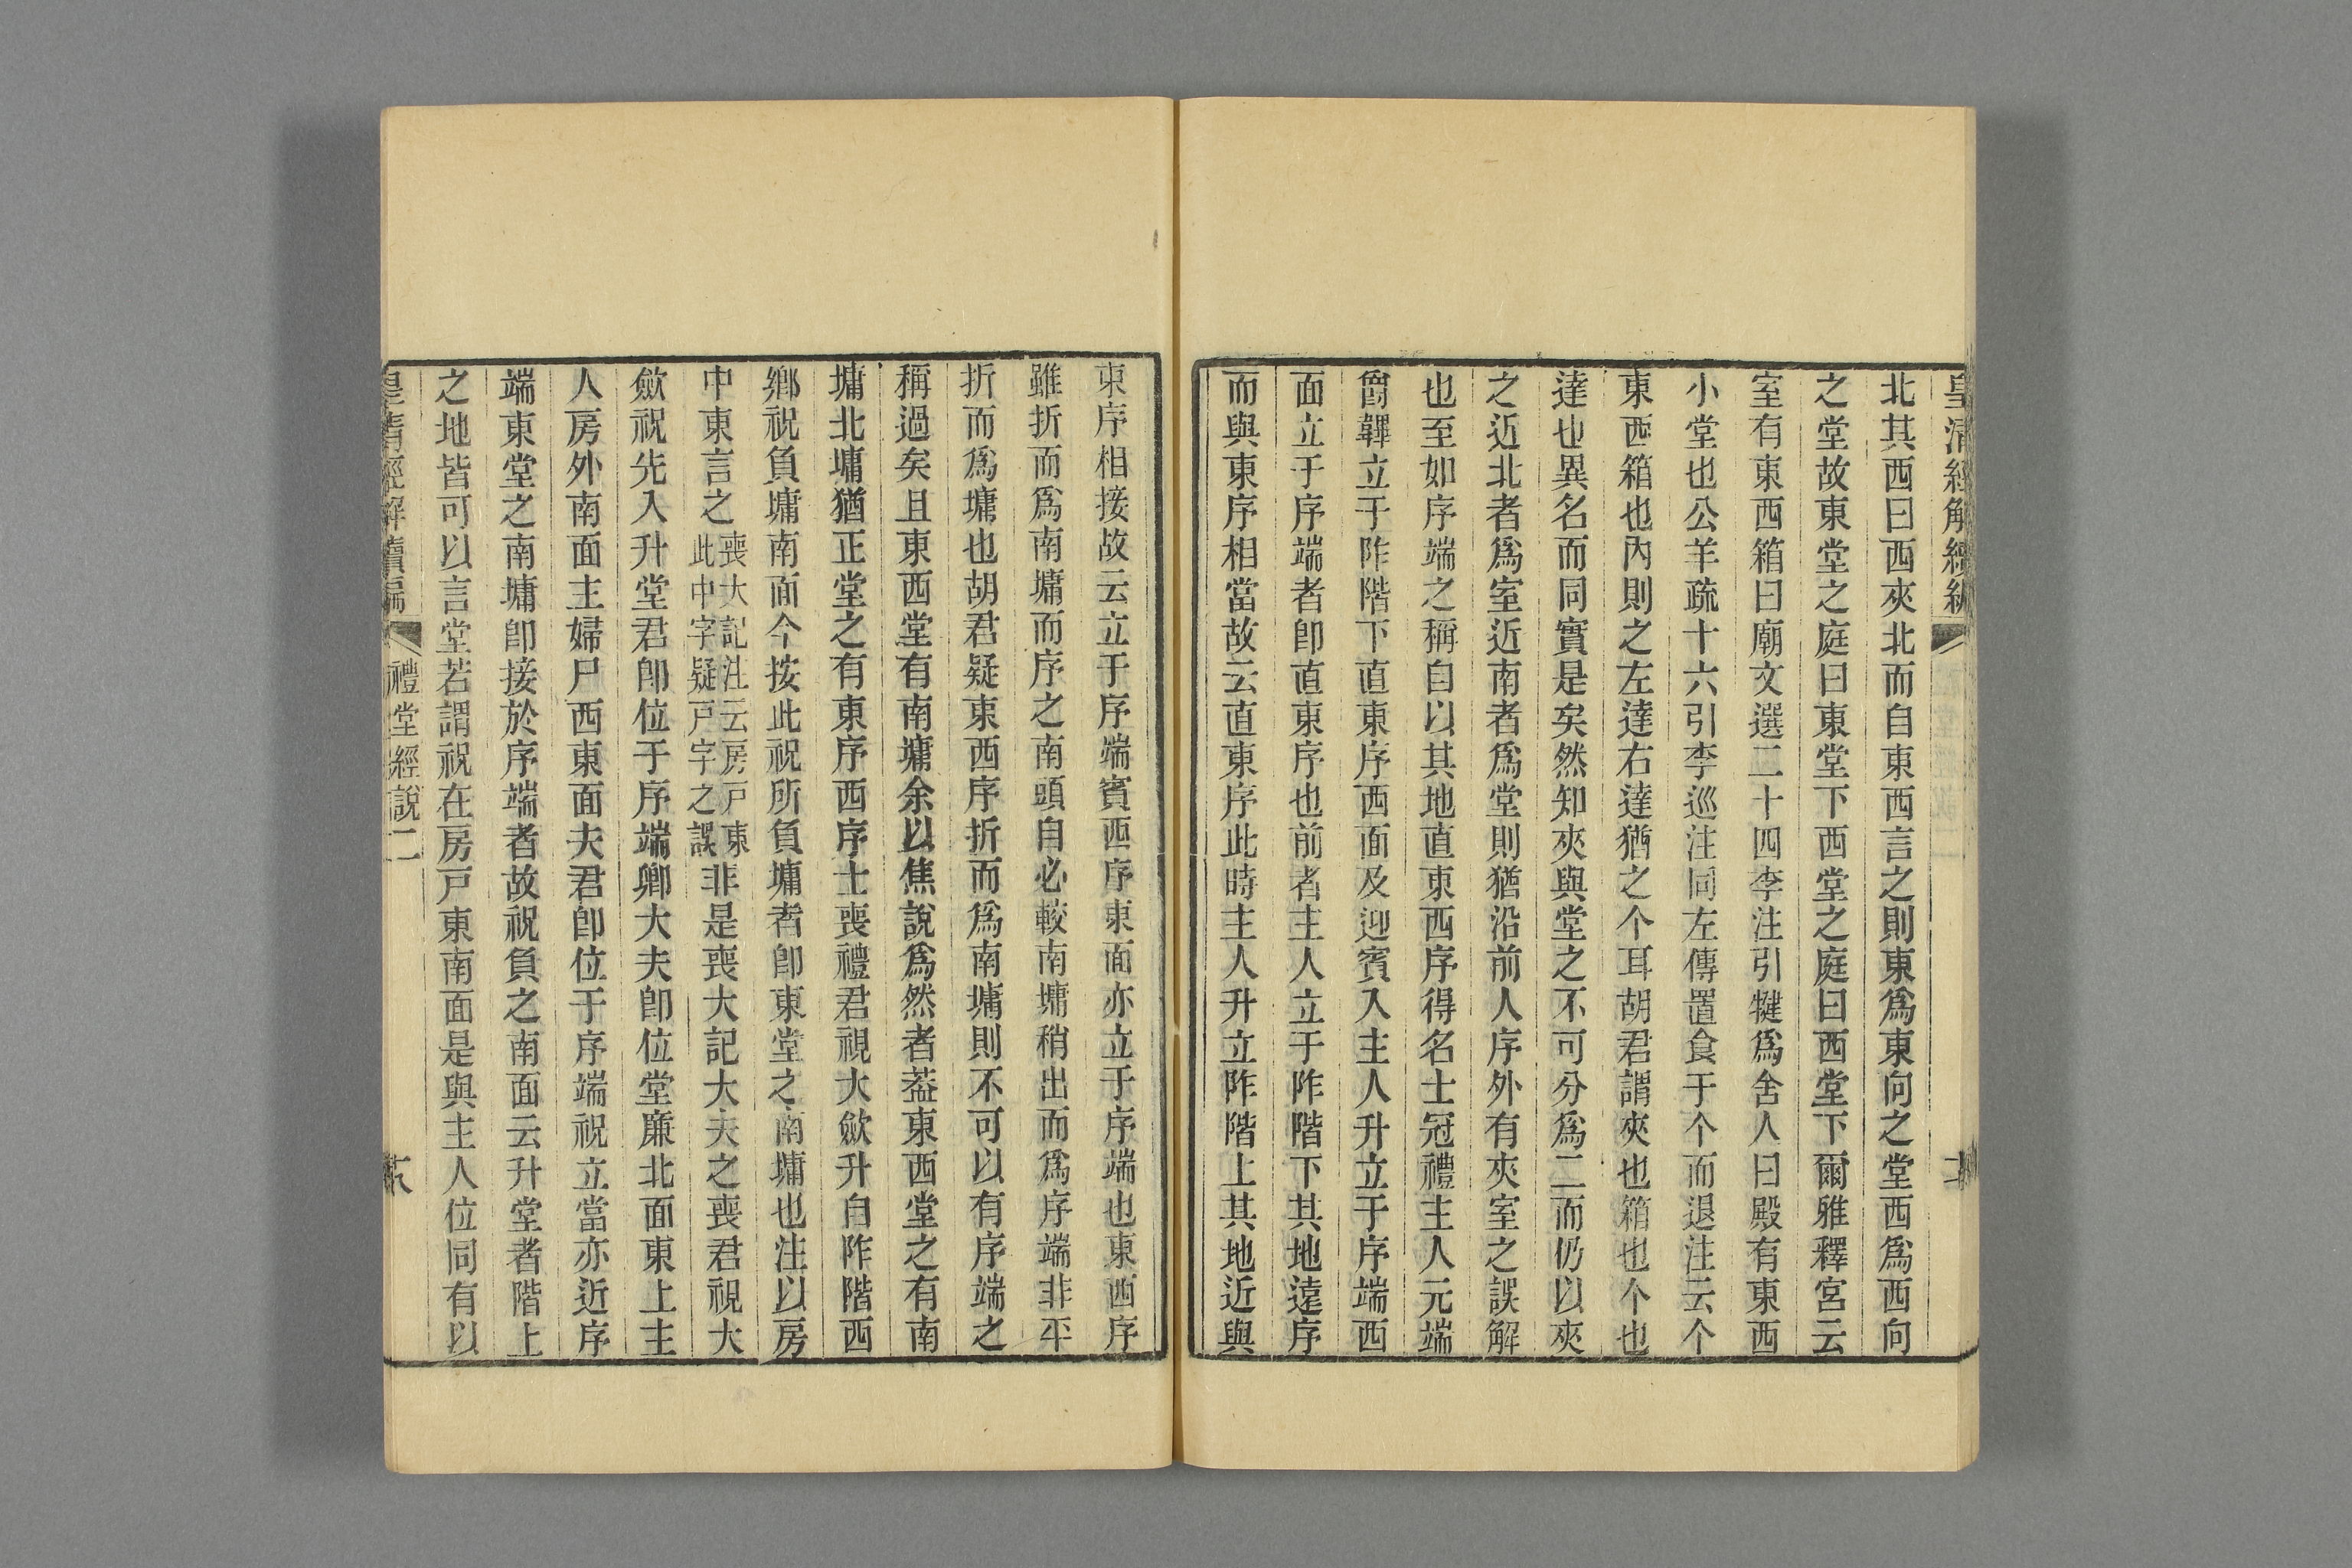 皇清經解續編
北其西曰西夾北而自東西言之則東爲東向之堂西爲西向
之堂故東堂之庭曰東堂下西堂之庭曰西堂下爾雅釋宮云
室有東西箱曰廟文選二十四李注引犍爲舍人曰殿有東西
小堂也公羊疏十六引李巡注同左傳置食于个而退注云个
東西箱也內則之左達右達猶之个耳胡君謂夾也箱也个也
達也異名而同實是矣然知夾與堂之不可分爲二而仍以夾
之近北者爲室近南者爲堂則猶沿前人序外有夾室之誤解
也至如序端之稱自以其地直東西序得名士冠禮主人元端
爵韠立于阼階下直東序西面及迎賓入主人升立于序端西
面立于序端者卽直東序也前者主人立于阼階下其地遠序
而與東序相當故云直東序此時主人升立阼階上其地近與
東序相接故云立于序端賓西序東面亦立于序端也東西序
雖折而爲南墉而序之南頭自必較南墉稍出而爲序端非平
折而爲墉也胡君疑東西序折而爲南墉則不可以有序端之
稱過矣且東西堂有南墉余以焦說爲然者葢東西堂之有南
墉北墉猶正堂之有東序西序士喪禮君視大斂升自阼階西
鄉祝負墉南面今按此祝所負墉者卽東堂之南墉也注以房
中東言之喪大記注云房戸東此中字疑戸字之誤非是喪大記大夫之喪君視大
斂祝先入升堂君卽位于序端卿大夫卽位堂廉北面東上主
人房外南面主婦尸西東面夫君卽位于序端祝立當亦近序
端東堂之南墉卽接於序端者故祝負之南面云升堂者階上
之地皆可以言堂若謂祝在房戸東南面是與主人位同有以
皇清經解續編
禮堂經說二